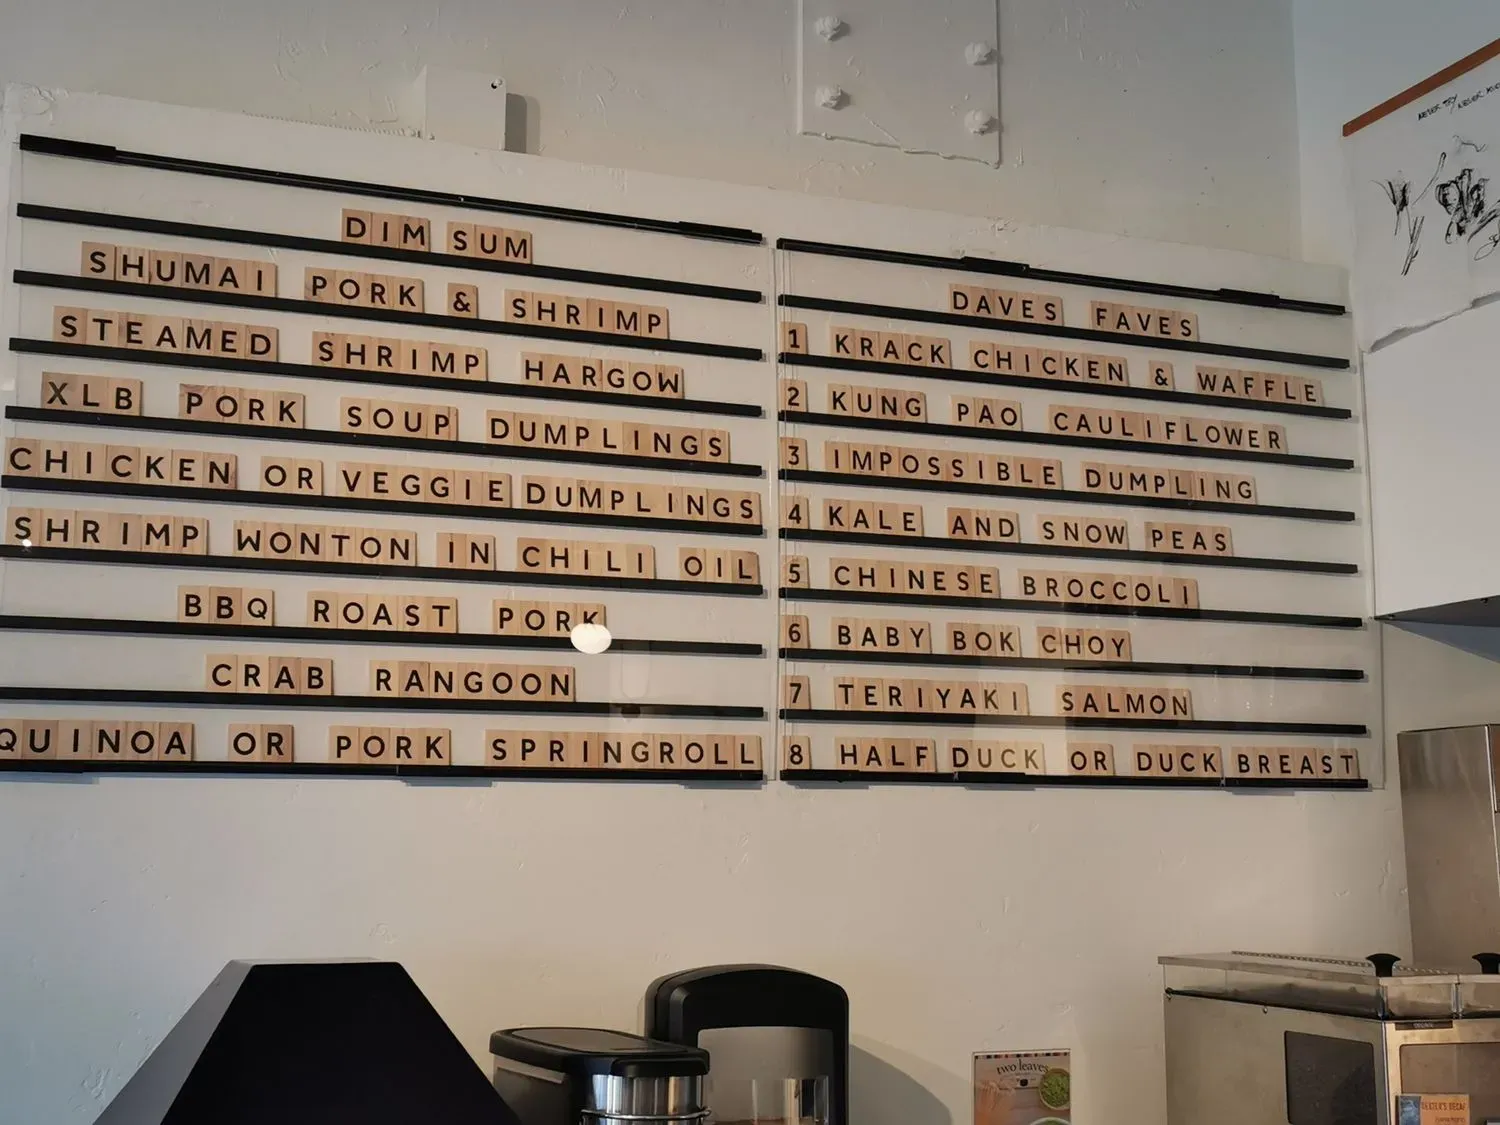 DIM SUM
SHUMAI PORK & SHRIMP
STEAMED SHRIMP HARGOW
XLB PORK SOUP DUMPLINGS
CHICKEN OR VEGGIE DUMPLINGS
SHRIMP WONTON IN CHILI OIL
BBQ ROAST PORK
CRAB RANGOON
QUINOA OR PORK SPRINGROLL
DAVES FAVES
1 KRACK CHICKEN & WAFFLE
2 KUNG PAO CAULIFLOWER
3 IMPOSSIBLE DUMPLING
4 KALE AND SNOW PEAS
5 CHINESE BROCCOLI
6 BABY BOK CHOY
7 TERIYAKI SALMON
8 HALF DUCK OR DUCK BREAST
NEVER TRY NEVER
two leaves
DECAF